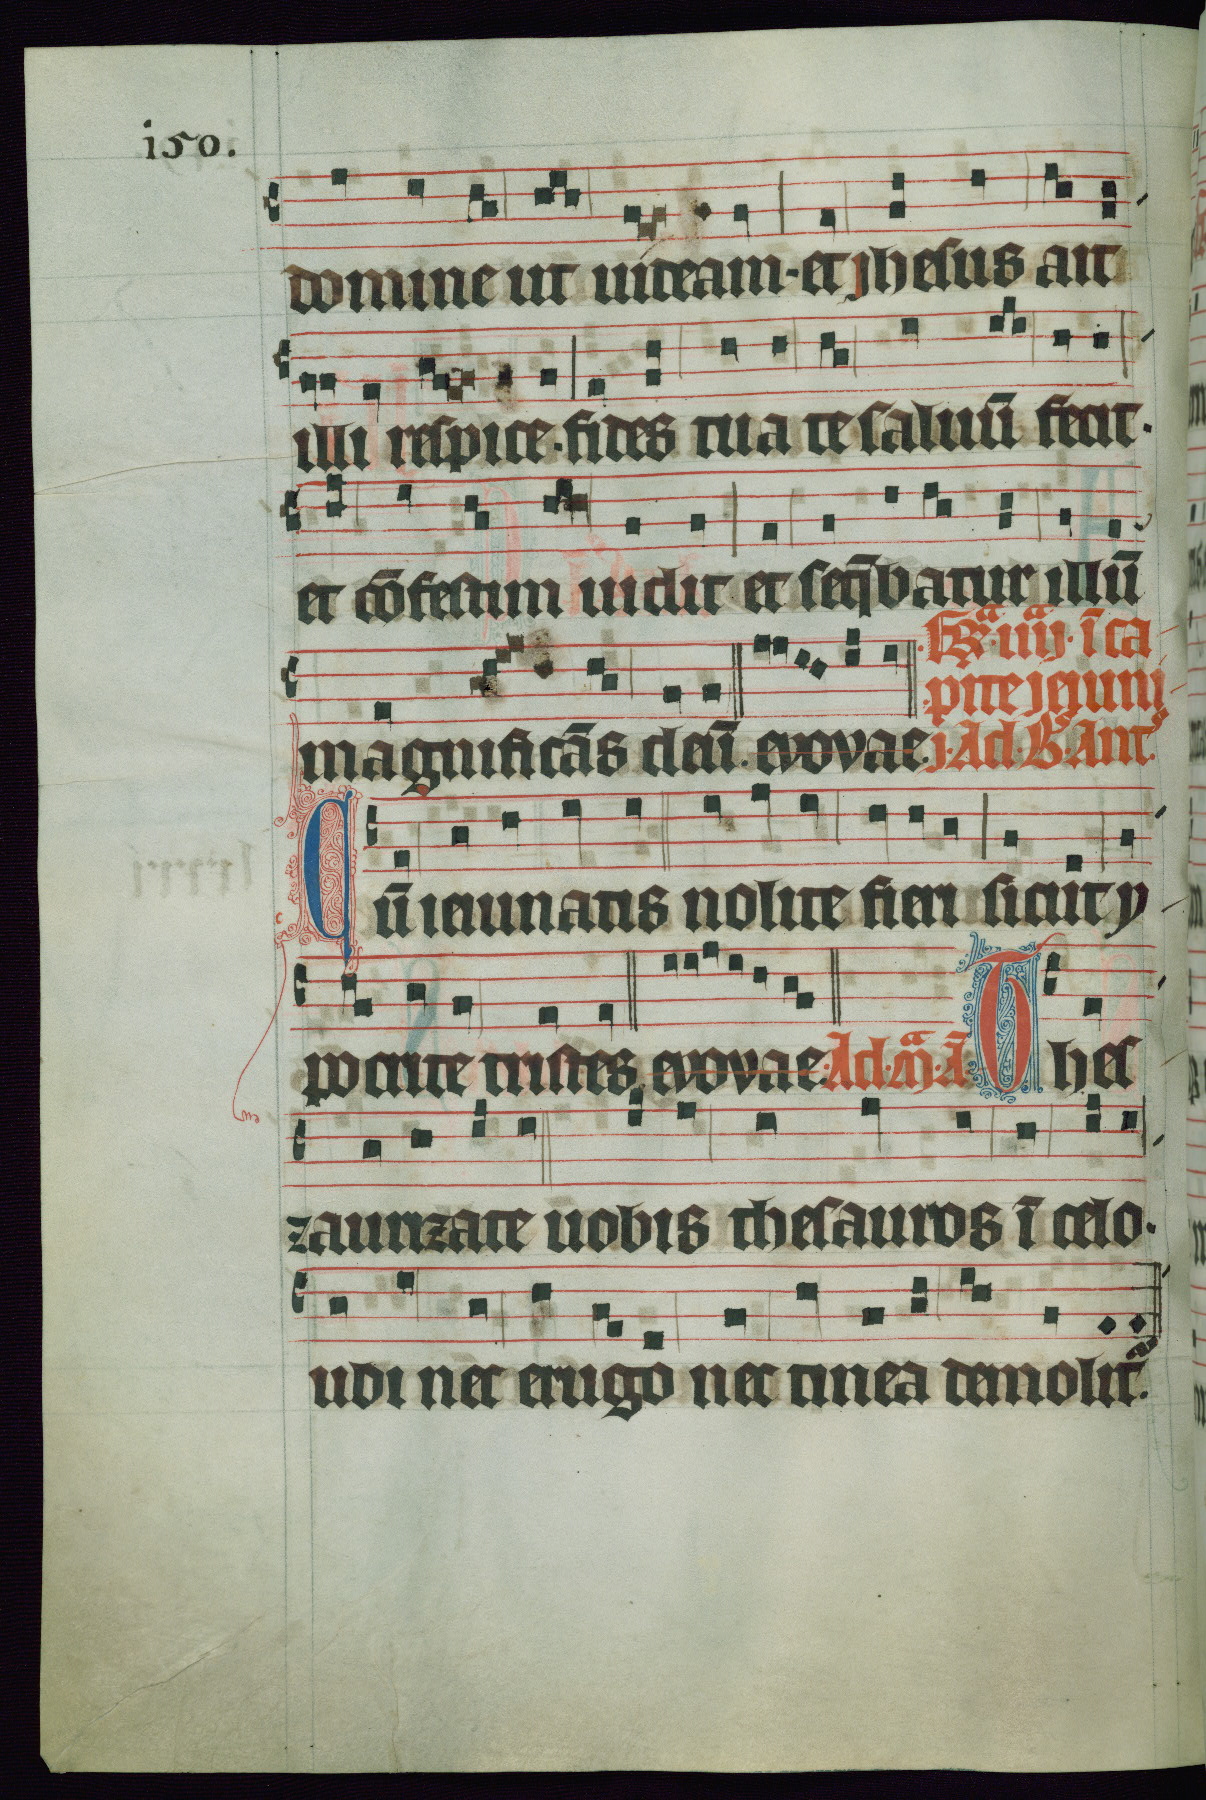 i50.
domine ut uideam·et jhesus ait
illi respice·fides tua te saluū fecit·
et cōfestim uidit et seq̄batur illū
magnificās deū. evovae
Fr̄ª·iiij·ī ca
pite jejunij
j·Ad·B̄·Antᵃ
Cū ieiunatis nolite fieri sicut y
pocrite tristes evovae Ad·m̄·ā Thes
zaurizate uobis thesauros ī celo·
ubi nec erugo nec tinea demolit̄.